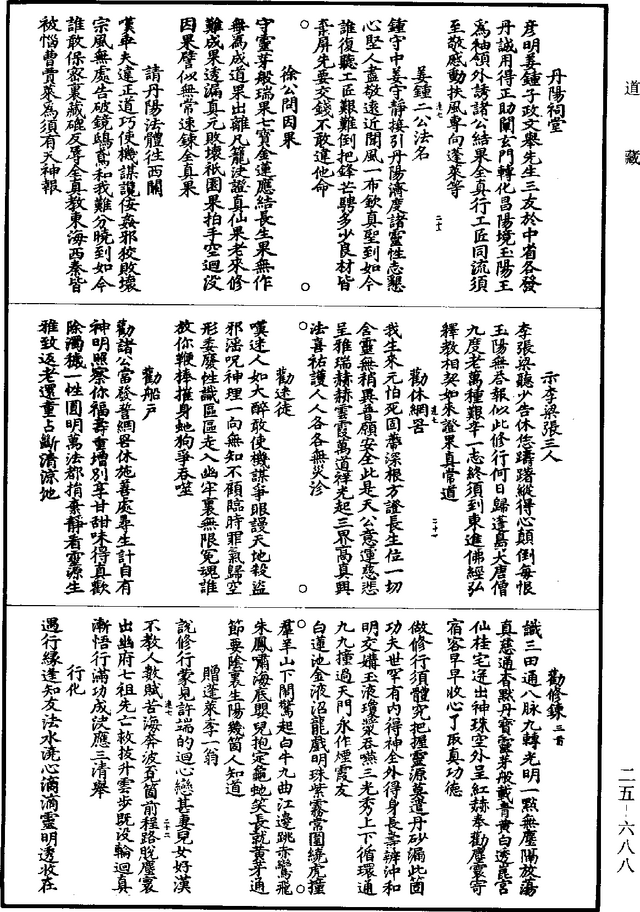 道藏
丹陽祠堂
彥明姜鍾子政文舉先生三友於中省各發
丹誠用得正助闡玄門轉化昌陽境玉陽王
為袖領外誘諸公結果全真行工匠同流須
至敬感動扶風專向蓬萊等
姜鍾二公法名
鍾守中姜守靜接引丹陽濟度諸靈性志懇
心堅人盡敬遠近聞風一布欽真聖到如今
誰復聽工匠艱難倒把鋒芒騁多少良材皆
屏先要交錢不敢違他命
徐公問因果
守靈芽般瑞果七寶金蓮應結長生果無作
無為成道果出離凡籠決證真仙果老來修
難成果透漏真元敗壞祇園果拍手空迴沒
因果譬似無常速鍊全真果
請丹陽法體往西關
嘆牟夫達正道巧使機謀讒佞姦邪狡敗壞
宗風無處告破鏡鴟鴞和我難分曉到如今
誰敢保密裏藏磋反辱全真教東海西秦皆
被惱曹貴萊為須有天神報
示李梁張三人
李張梁聽少告休恁躊躇縱得心顛倒每恨
玉陽無荅報似此修行何日歸蓬島大唐僧
九度老萬種艱辛一志終須到東進佛經弘
釋教相契如來證果真常道
勸休網罟
我生來元怕死固蔕深根方證長生位一切
含靈無稍異普願安全此是天公意運慈悲
呈雅瑞赫赫雲霞萬道祥光起三界高真興
法喜祐護人人各各無災沴
勸迷徒
嘆迷人如大醉敢使機謀爭眼謾天地殺盜
邪淫呪神理一向無知不顧臨時罪氣歸空
形委廢性識區區走入幽牢裏無限冤魂誰
救你鞭捧摧身虵狗爭吞噬
勸船戶
勸諸公當發誓網罟休施善處尋生計自有
神明照察你福壽重增別享甘甜味得真歡
除濁穢一性圓明萬法都捐棄靜看靈源生
雅致返老還童占斷清涼地
勸修鍊三首
識三田通八脉九轉光明一點無塵隔放蕩
真慈通杳默丹寶靈芽般載青黃白透崑宮
仙桂宅迸出神珠空外呈紅赫奉勸塵寰寄
宿客早早收心了取真功德
做修行須體究把握靈源莫遣丹砂漏此箇
功夫世罕有內得神全外得身長壽辨沖和
明交媾玉液瓊漿吞嚥三光秀上下循環通
九九撞過天門永作煙霞友
白蓮池金液沼龍戲明珠紫霧常圍繞虎撞
羣羊山下鬧驚起白牛九曲江邊跳赤鸞飛
朱鳳嘯海底嬰兒抱定龜虵笑長就黃芽通
節要陰裏生陽幾箇人知道
贈蓬萊李一翁
說修行蒙見許端的迴心戀甚妻兒女好漢
不教人數賦苦海奔波覓箇前程路脫塵寰
出幽府七祖先亡救拔升雲步既沒輪迴真
漸悟行滿功成決應三清舉
行化
遇行緣逢知友法水澆心滴滴靈明透收在
二五–六八八